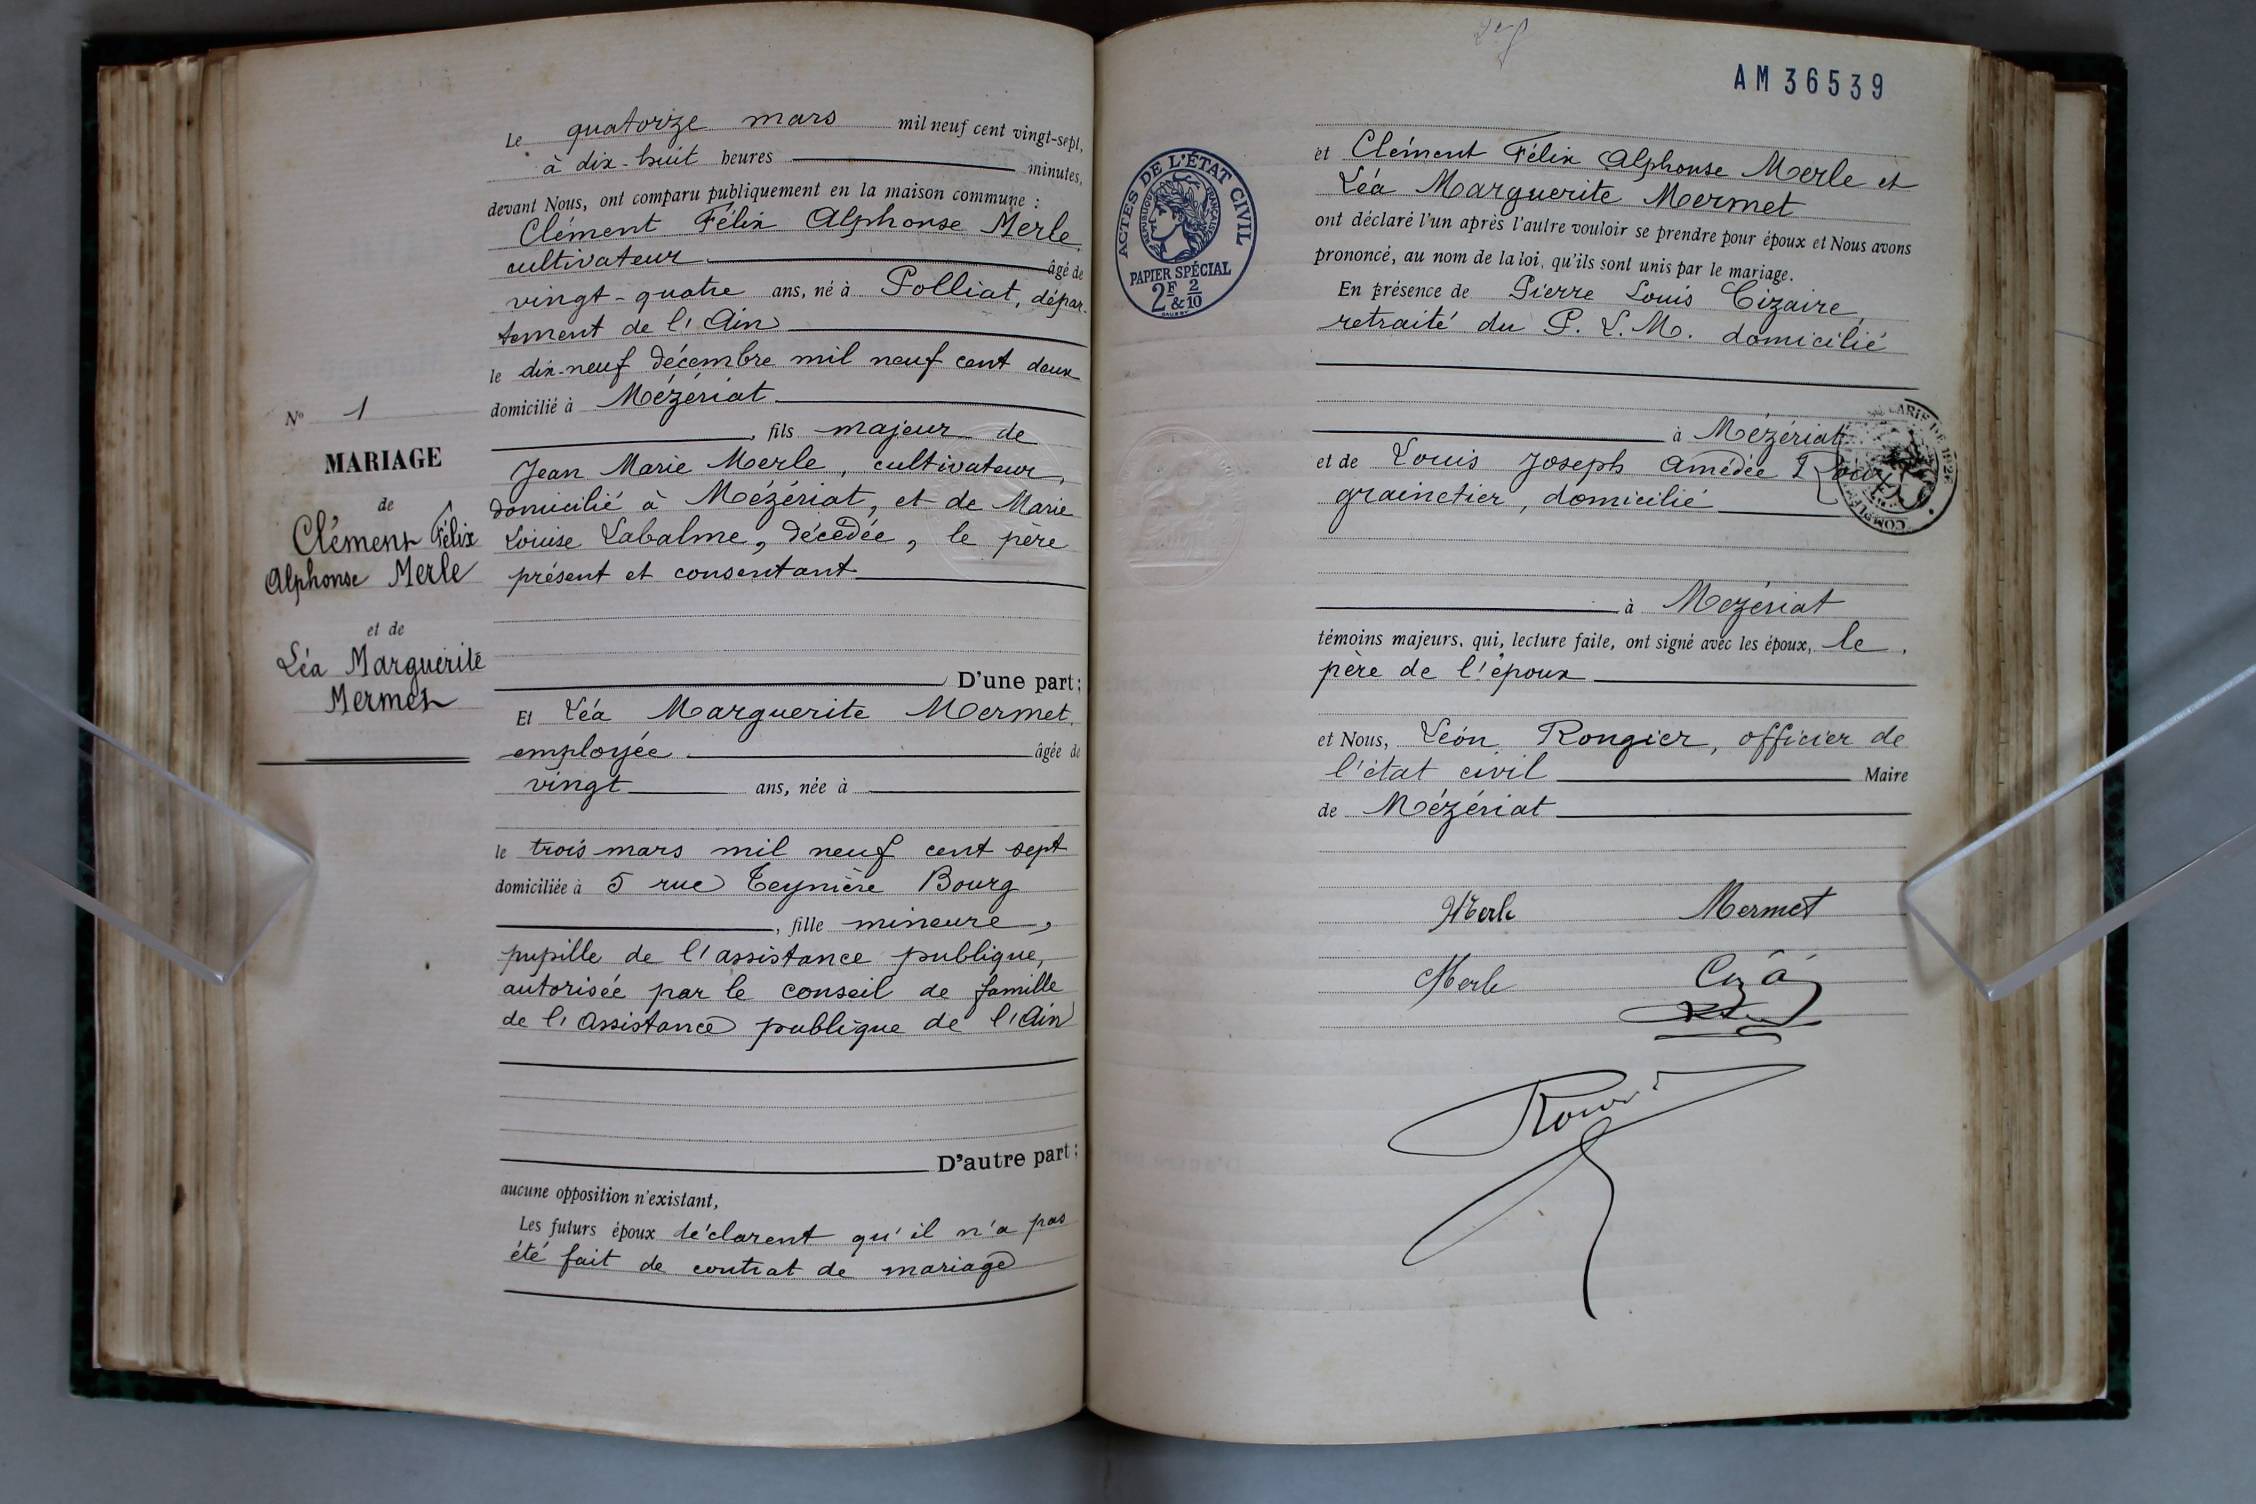 N° 1
MARIAGE
de
Clément Félix
Alphonse Merle
et de
Léa Marguerite
Mermet
Le quatorze mars mil neuf cent vingt-sept,
à dix-huit heures minutes,
devant Nous, ont comparu publiquement en la maison commune :
Clément Félix Alphonse Merle,
cultivateur âgé de
vingt-quatre ans, né à Polliat, dépar-
tement de l'Ain
le dix-neuf décembre mil neuf cent deux
domicilié à Mézériat
, fils majeur de
Jean Marie Merle, cultivateur,
domicilié à Mézériat, et de Marie
Louise Labalme, décédée, le père
présent et consentant
D'une part ;
Et Léa Marguerite Mermet,
employée âgée de
vingt ans, née à
le trois mars mil neuf cent sept
domiciliée à 5 rue Teynière Bourg
, fille mineure,
pupille de l'assistance publique,
autorisée par le conseil de famille
de l'Assistance publique de l'Ain
D'autre part ;
aucune opposition n'existant,
Les futurs époux déclarent qu'il n'a pas
été fait de contrat de mariage
AM 36539
ACTES DE L'ÉTAT CIVIL
RÉPUBLIQUE FRANÇAISE
PAPIER SPÉCIAL
2F & 2/10
et Clément Félix Alphonse Merle et
Léa Marguerite Mermet
ont déclaré l'un après l'autre vouloir se prendre pour époux et Nous avons
prononcé, au nom de la loi, qu'ils sont unis par le mariage.
En présence de Pierre Louis Cizaire,
retraité du P. L. M. domicilié
à Mézériat
et de Louis Joseph Amédée
grainetier, domicilié
à Mézériat
témoins majeurs, qui, lecture faite, ont signé avec les époux, le
père de l'époux
et Nous, Léon Rongier, officier de
l'état civil Maire
de Mézériat
Merle Mermet
Merle